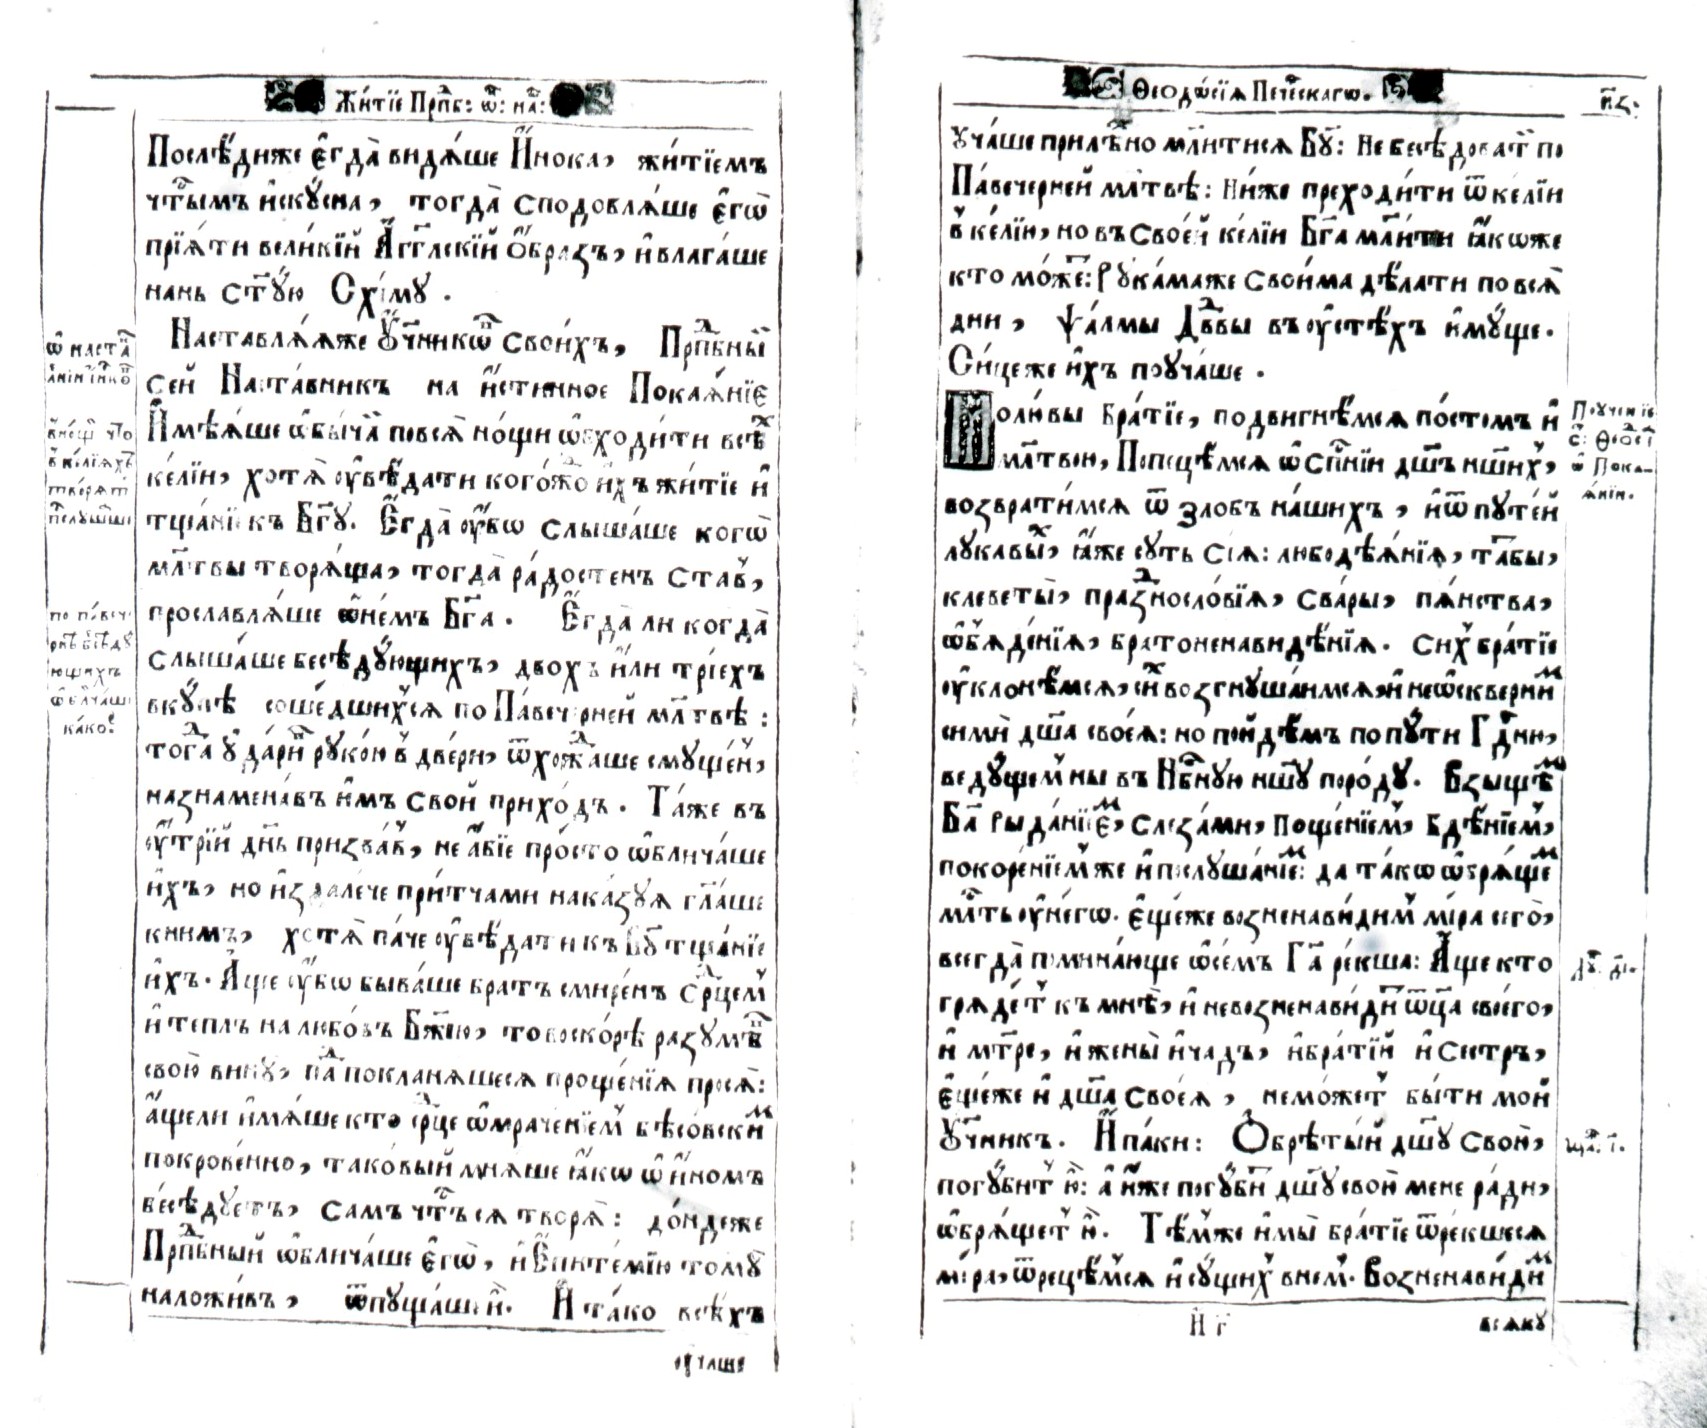 Жи́тїе Прпⷣб: ѿ: на:
Послѣ́диже є҆гда̀ видѧ́ше И҆́нока, жи́тїемъ
чтⷭ҇ымъ и҆скꙋ́сна, тогда̀ сподоблѧ́ше є҆го̀
прїѧ́ти вели́кїй А҆́гг҃лскїй О҆́бразъ, и҆ влага́ше
нань ст҃ꙋ́ю Схи́мꙋ.
Наставлѧ́ѧже Оу҆ч҃никѡ́в свои́хъ, Прпⷣбный
сей Наста́вникъ на и҆́стинное Покаѧ́нїе
И҆мѣѧ́ше ѡ҆бы́чай повсѧ̀ но́щи ѡ҆бходи́ти всѣ̀ⷯ
ке́лїи, хотѧ̀ оу҆вѣ́дати кого́ждо и҆́хъ жи́тїе и҆
тща́нїе къ Бг҃ꙋ. Є҆гда̀ оу҆́бѡ слы́шаше когѡ̀
мл҃твы творѧ́ща, тогда̀ ра́достенъ ста́в,
прославлѧ́ше ѡ҆не́мъ Бг҃а. Є҆гда̀ ли когда̀
слы́шаше бесѣ́дꙋющихъ, двохъ и҆́ли трїе́хъ
вкꙋ́пѣ соше́дшихсѧ по Па́вечерней мл҃твѣ:
тогⷣа оу҆да́рив рꙋко́ю в две́ри, ѿхожⷣа́ше смꙋще́н,
назнамена́въ и҆̀мъ свой прихо́дъ. Та́же въ
оу҆́трїй дн҃ь призва́в, не а҆́бїе про́сто ѡ҆блича́ше
и҆́хъ, но и҆здале́че при́тчами нака́зꙋѧ гл҃аше
книмъ, хотѧ̀ па́че оу҆вѣ́дати къ Бг҃ꙋ тща́нїе
и҆́хъ. А҆́ще оу҆́бѡ быва́ше братъ смире́нъ ср҃цем
и҆ те́плъ на любо́въ Бж҃їю, то вско́рѣ разꙋмѣ́в
свою̀ винꙋ̀, паⷣ покланѧ́шесѧ проще́нїѧ просѧ̀:
а҆́щели и҆мѧ́ше кто ср҃це ѡ҆мраче́нїем бѣсо́вскиⷨ
покрове́нно, тако́вый мнѧ́ше ꙗ҆́кѡ ѡ҆ и҆́номъ
бесѣ́дꙋетъ, самъ чтⷭ҇ъ сѧ творѧ̀: до́ндеже
Прпⷣбный ѡ҆блича́ше є҆го̀, и҆ Є҆питемїю томꙋ̀
наложи́въ, ѿпꙋща́ше и҆̀. И҆ та́ко всѣ́хъ
оу҆чаше
ѡ҆ наста
вле́нїи и҆́нокѡ
в но́щи что
в ке́лїѧхъ
творѧ́тъ
по па́вече
рнѣ бесѣ́дꙋ
ющихъ
ѡ҆блича́ше
ка́ко.
Ѳеодо́сїѧ Пече́рскагѡ.
н҃з.
оу҆ча́ше прилѣ́жно мл҃и́тисѧ Бг҃ꙋ: не бесѣ́довати по
Па́вечерней мл҃твѣ: Ни́же преходи́ти ѿ ке́лїи
в ке́лїи, но въ свое́й ке́лїи Бг҃а мл҃и́ти ꙗ҆́коже
кто мо́жет: Рꙋка́маже свои́ма дѣ́лати по всѧ̀
дни, ѱа́лмы Дв҃ды въ оу҆стѣ́хъ и҆мꙋ́ще.
Си́цеже и҆́хъ поꙋча́ше.
Моли́ вы бра́тїе, подви́гнѣмсѧ по́стомъ и҆
мл҃твою, Попецѣ́мсѧ ѡ҆ сп҃сенїи дш҃ъ нш҃их,
возврати́мсѧ ѿ злобъ на́шихъ, и҆ ѿ пꙋте́й
лꙋка́выⷯ, ꙗ҆́же сꙋть сїѧ̀: любодѣѧ́нїѧ, татбы̀,
клеветы̀, праⷥднослѡ́вїѧ, сва́ры, пѧ́нства,
ѡ҆б̾ѧде́нїѧ, братоненавидѣ́нїѧ. Сих бра́тїе
оу҆клонѣ́мсѧ, сиⷯ возгнꙋша́имсѧ, и҆ неѡ҆скверни́ⷨ
сими дш҃а своеѧ̀: но по́йдѣмъ по пꙋти́ Гдⷭ҇ни,
ведꙋ́щем ны въ Нбⷭ҇нꙋю нш҃ꙋ поро́дꙋ. Взы́щѣⷨ
Бг҃а рыда́нїеⷨ, слеза́ми, поще́нїем, бдѣ́нїем,
покоре́нїем же и҆ послꙋша́нїеⷨ: да та́ко ѡ҆брѧ́щеⷨ
млⷭ҇ть оу҆ негѡ̀. Є҆ще́же возненави́дим мі́ра сего̀,
всегда̀ помина́юще ѡ҆ се́мъ Гдⷭ҇а ре́кша: А҆́ще кто
грѧде́т къ мнѣ̀, и҆ невозненави́дит ѿц҃а своего̀,
и҆ мт҃ре, и҆ жены̀ и҆ чадъ, и҆ бра́тїи и҆ сестръ,
є҆ще́же и҆ дш҃а своеѧ̀, немо́жет бы́ти мой
Оу҆ч҃никъ. И҆ па́ки: Ѻ҆брѣты́й дш҃ꙋ свою̀,
погꙋби́т ю҆̀: а҆ и҆́же погꙋби́т дш҃ꙋ свою̀ мене ра́ди,
ѡ҆брѧ́щет ю҆̀. Тѣ́мже и҆ мы̀ бра́тїе ѿре́кшесѧ
мі́ра, ѿрецѣ́мсѧ и҆ сꙋ́щих внем. Возненави́диⷨ
Поꙋче́нїе
с: Ѳеодосї
ѡ҆ Пока-
ѧ́нїи.
Лꙋ: д҃і.
Н г
всѧкꙋ